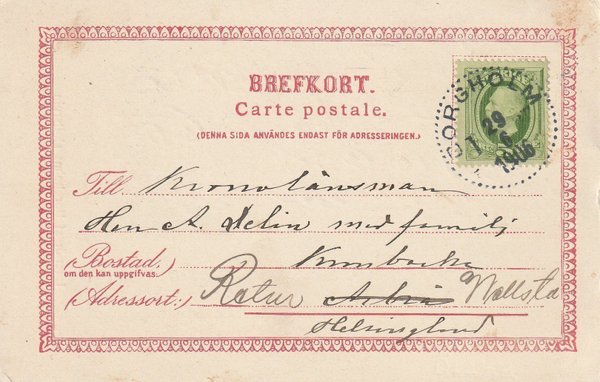 BREFKORT.
Carte postale.
(DENNA SIDA ANVÄNDES ENDAST FÖR ADRESSERINGEN.)
BORGHOLM
29
6
1906
Till Kronolänsman
Herr A. Delin med familj
(Bostad,
om den kan uppgifvas.)
(Adressort:) Retur Arbrå Wallsta
Helsingland